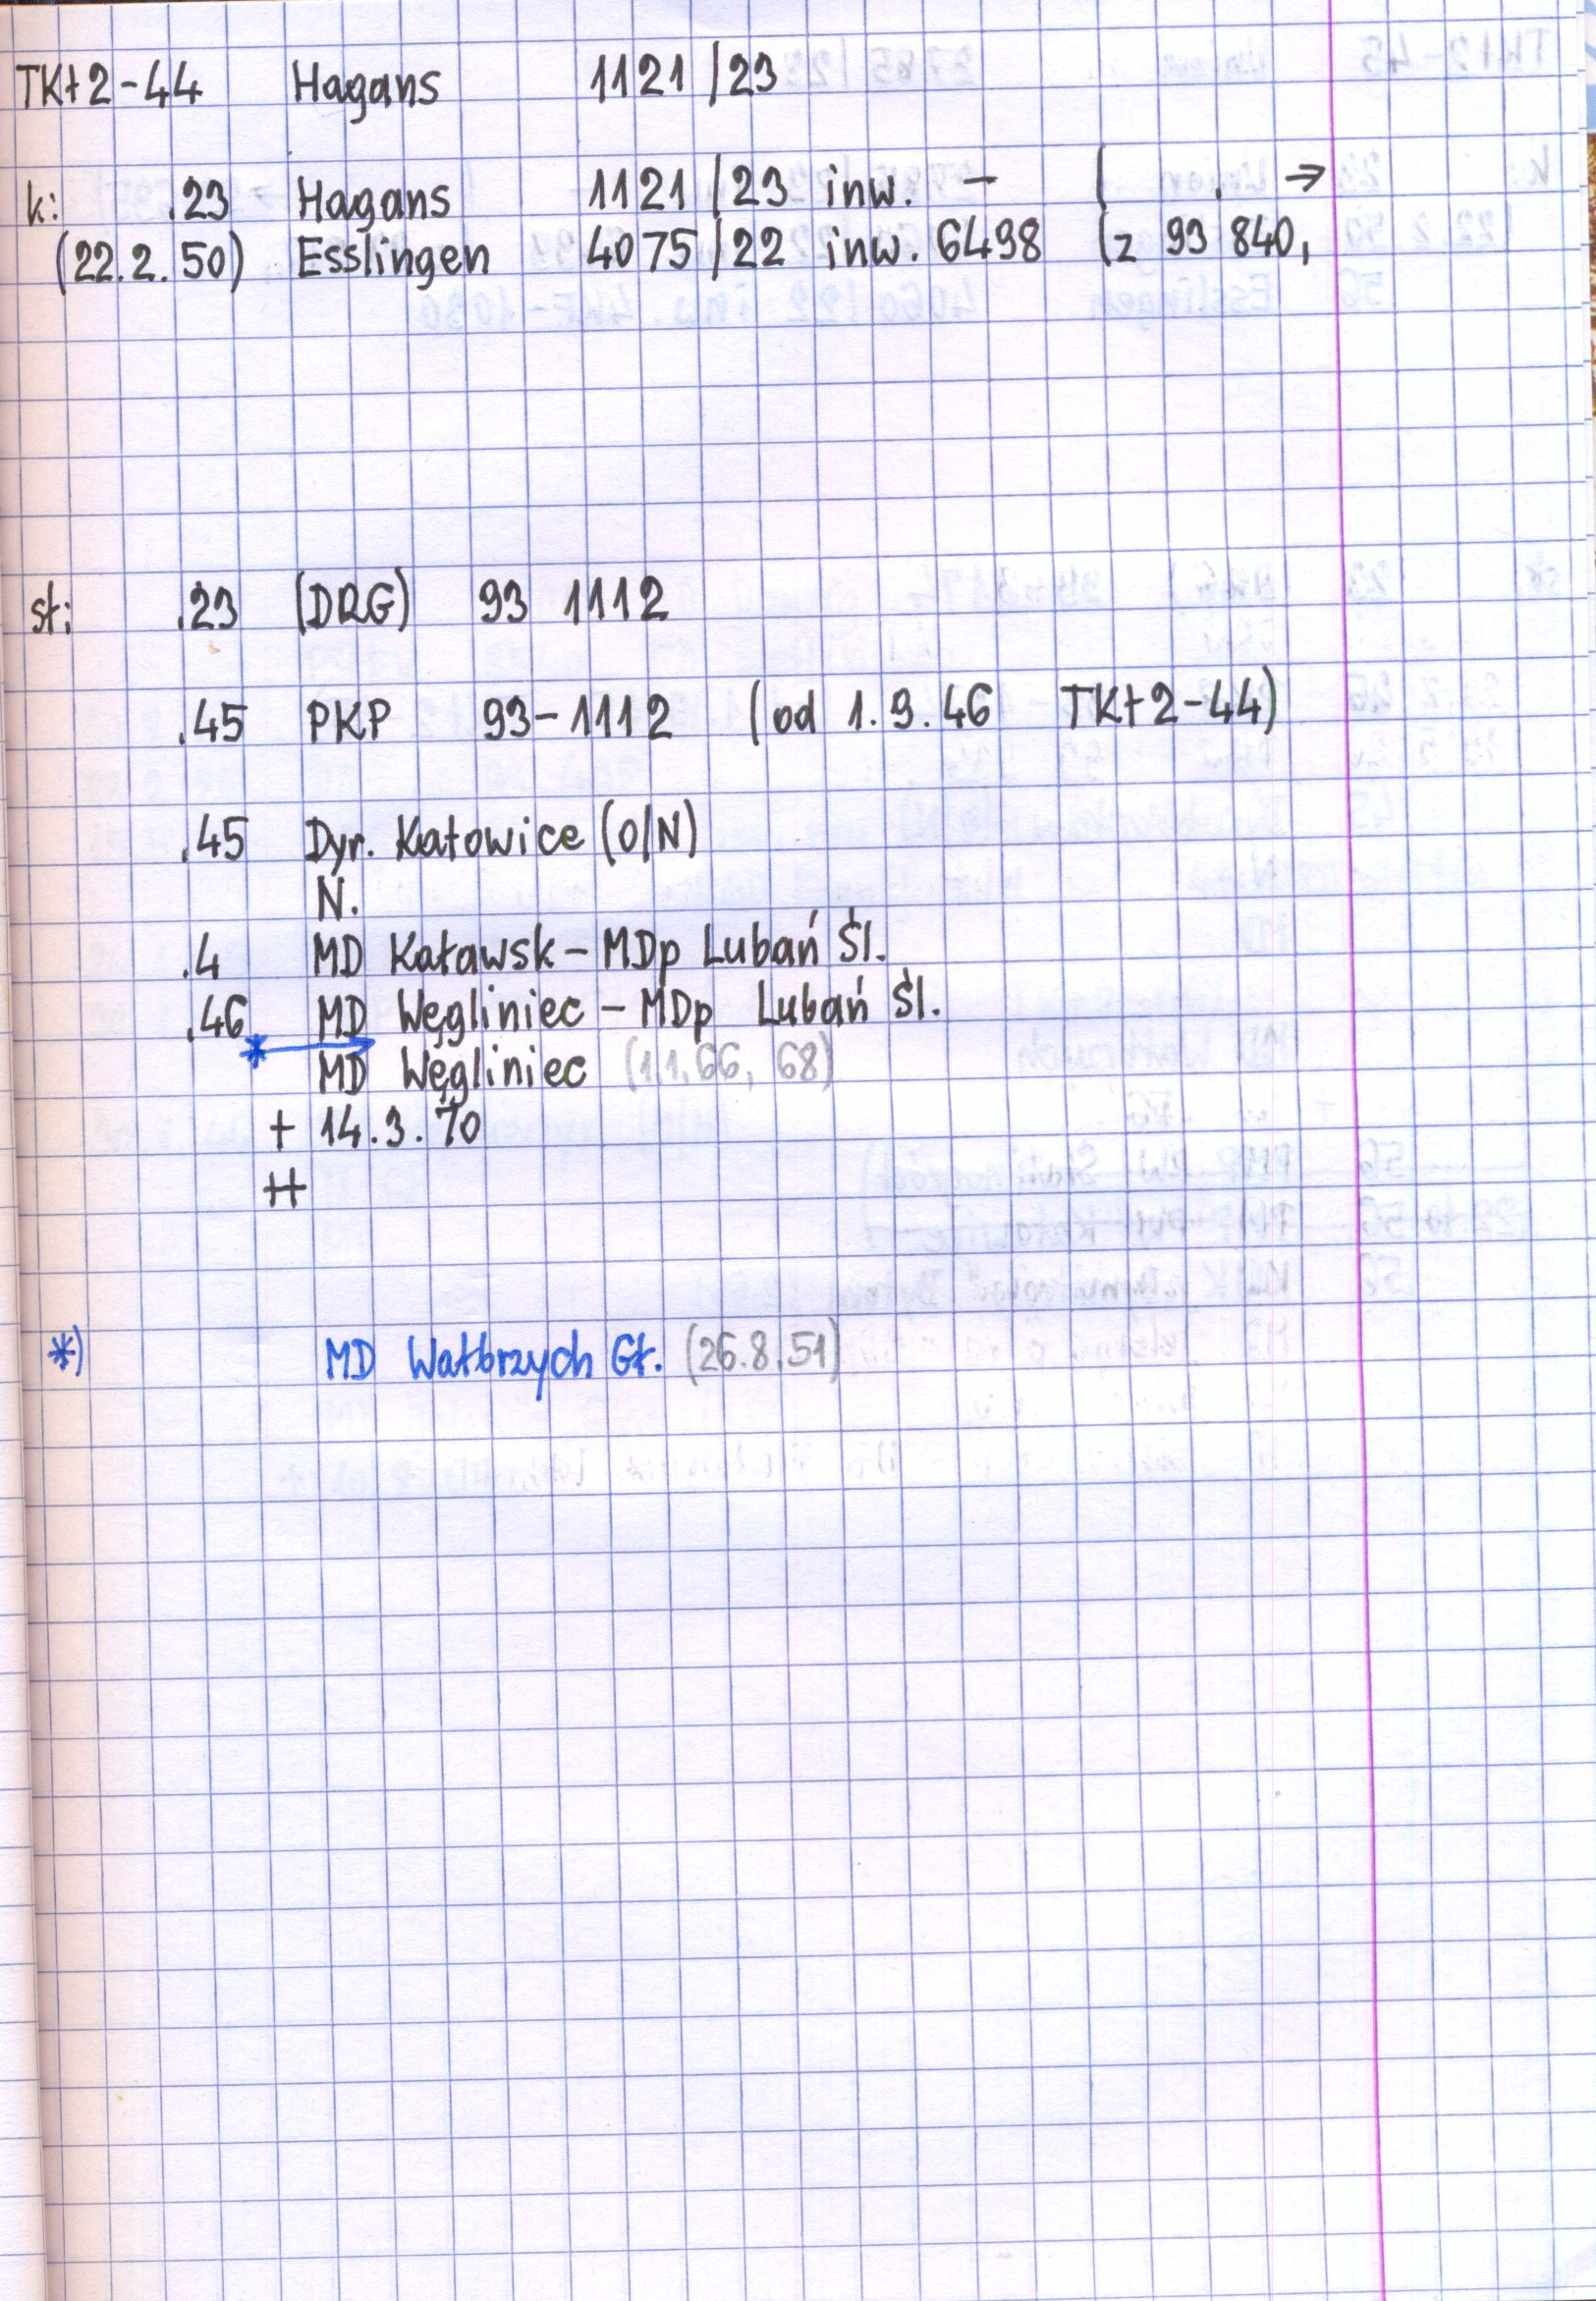 TKt2-44 Hagans 1121/23
k: .23 Hagans 1121/23 inw. - ( . →
(22.2.50) Esslingen 4075/22 inw. 6498 (z 93 840,
st: .23 (DRG) 93 1112
.45 PKP 93-1112 (od 1.9.46 TKt2-44)
.45 Dyr. Katowice (O/N)
N.
.4 MD Kaławsk - MDp Lubań Śl.
.46 MD Węgliniec - MDp Lubań Śl.
*
MD Węgliniec (1.1.66, 68)
+ 14.3.70
++
*) MD Wałbrzych Gł. (26.8.51)